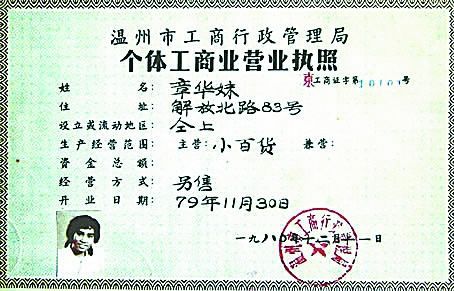 温州市工商行政管理局
个体工商业营业执照
工商证字第10101号
姓 名: 章华妹
住 址: 解放北路83号
设立或流动地区: 仝上
生产经营范围: 主营: 小百货 兼营:
资 金 总 额:
经 营 方 式: 另售
开 业 日 期: 79年11月30日
一九八〇年十二月十一日
温州市工商行政管理局